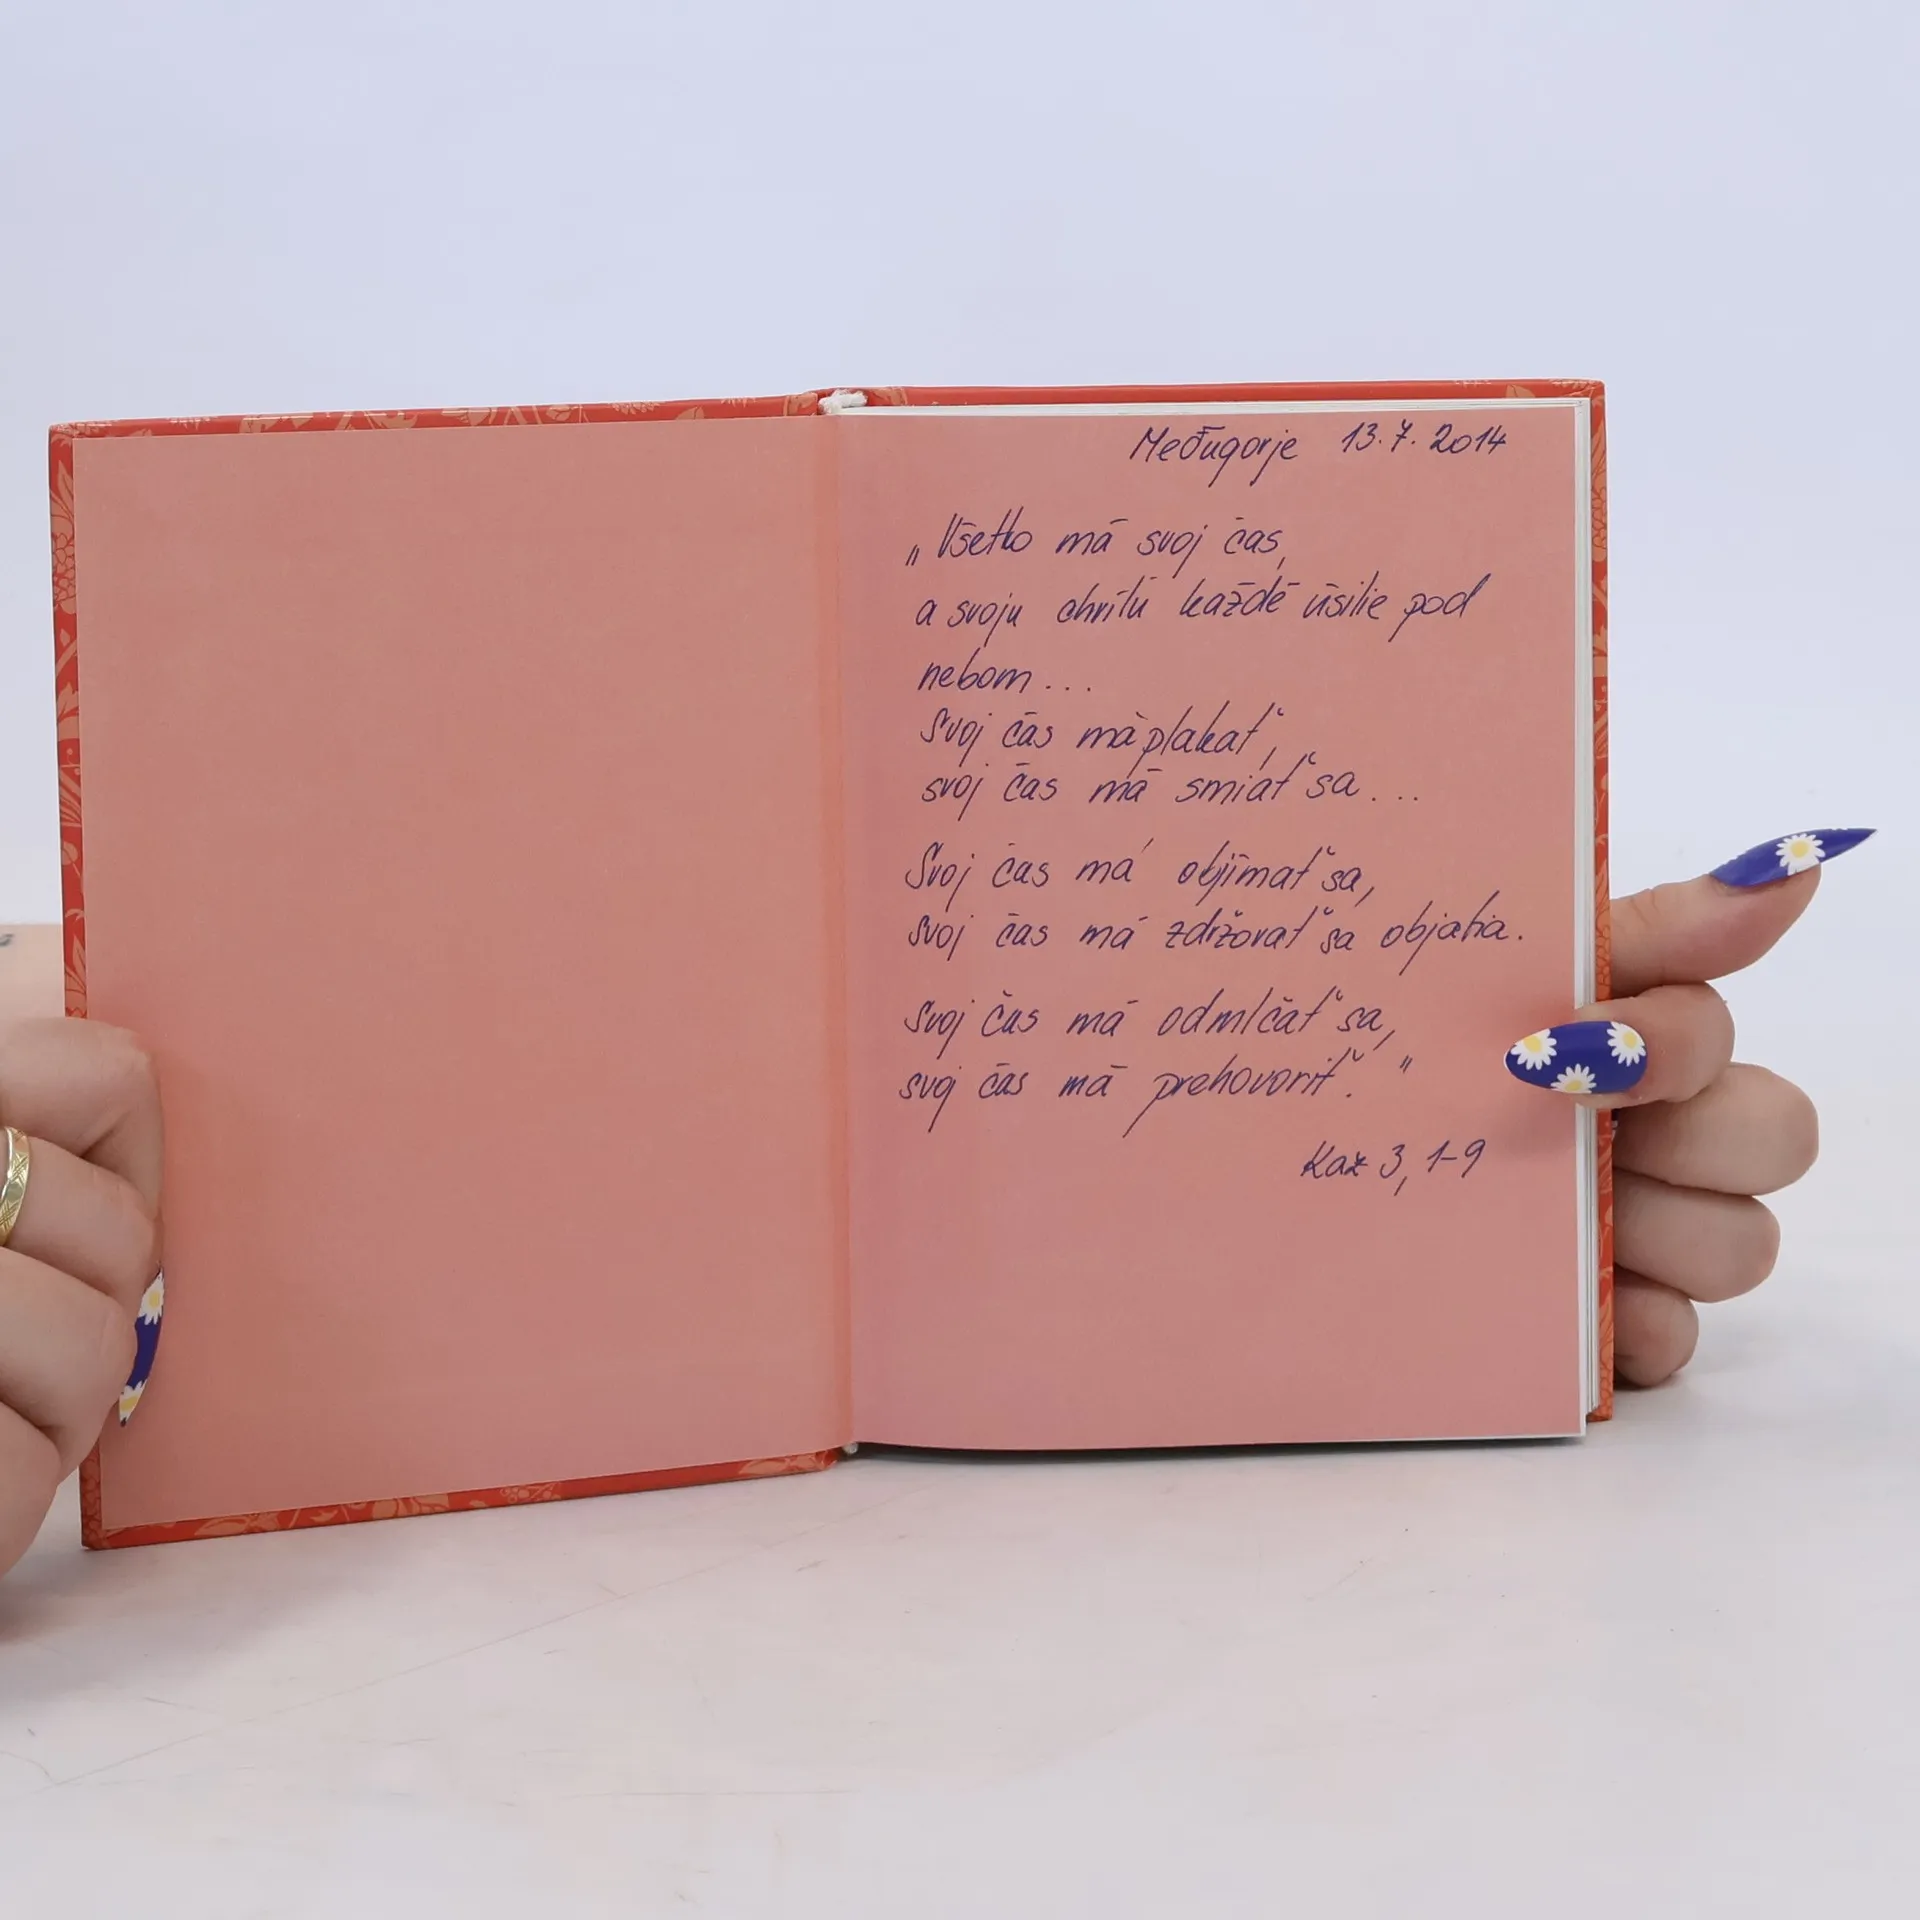 Međugorje 13.7.2014
„Všetko má svoj čas,
a svoju chvíľu každé úsilie pod
nebom...
Svoj čas má plakať,
svoj čas má smiať sa...
Svoj čas má objímať sa,
svoj čas má zdržovať sa objatia.
Svoj čas má odmlčať sa,
svoj čas má prehovoriť."
Kaz 3, 1-9